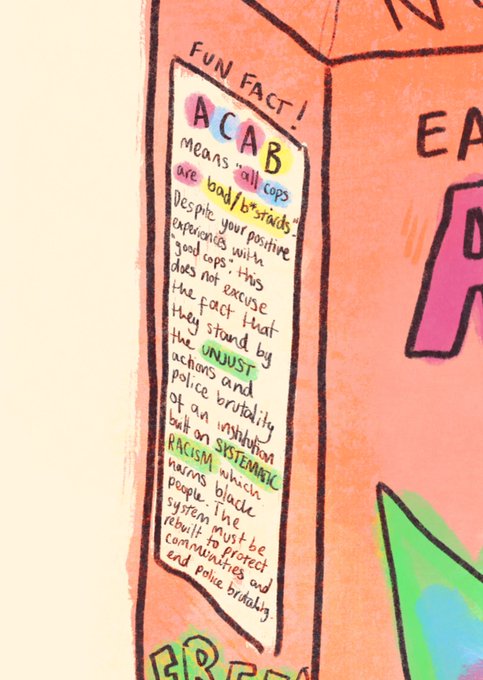 FUN FACT!
ACAB
means "all cops
are bad/b*stards".
Despite your positive
experiences with
"good cops", this
does not excuse
the fact that
they stand by
the UNJUST
actions and
police brutality
of an institution
built on SYSTEMATIC
RACISM which
harms black
people. The
system must be
rebuilt to protect
communities and
end police brutality.
EA
A
FREE